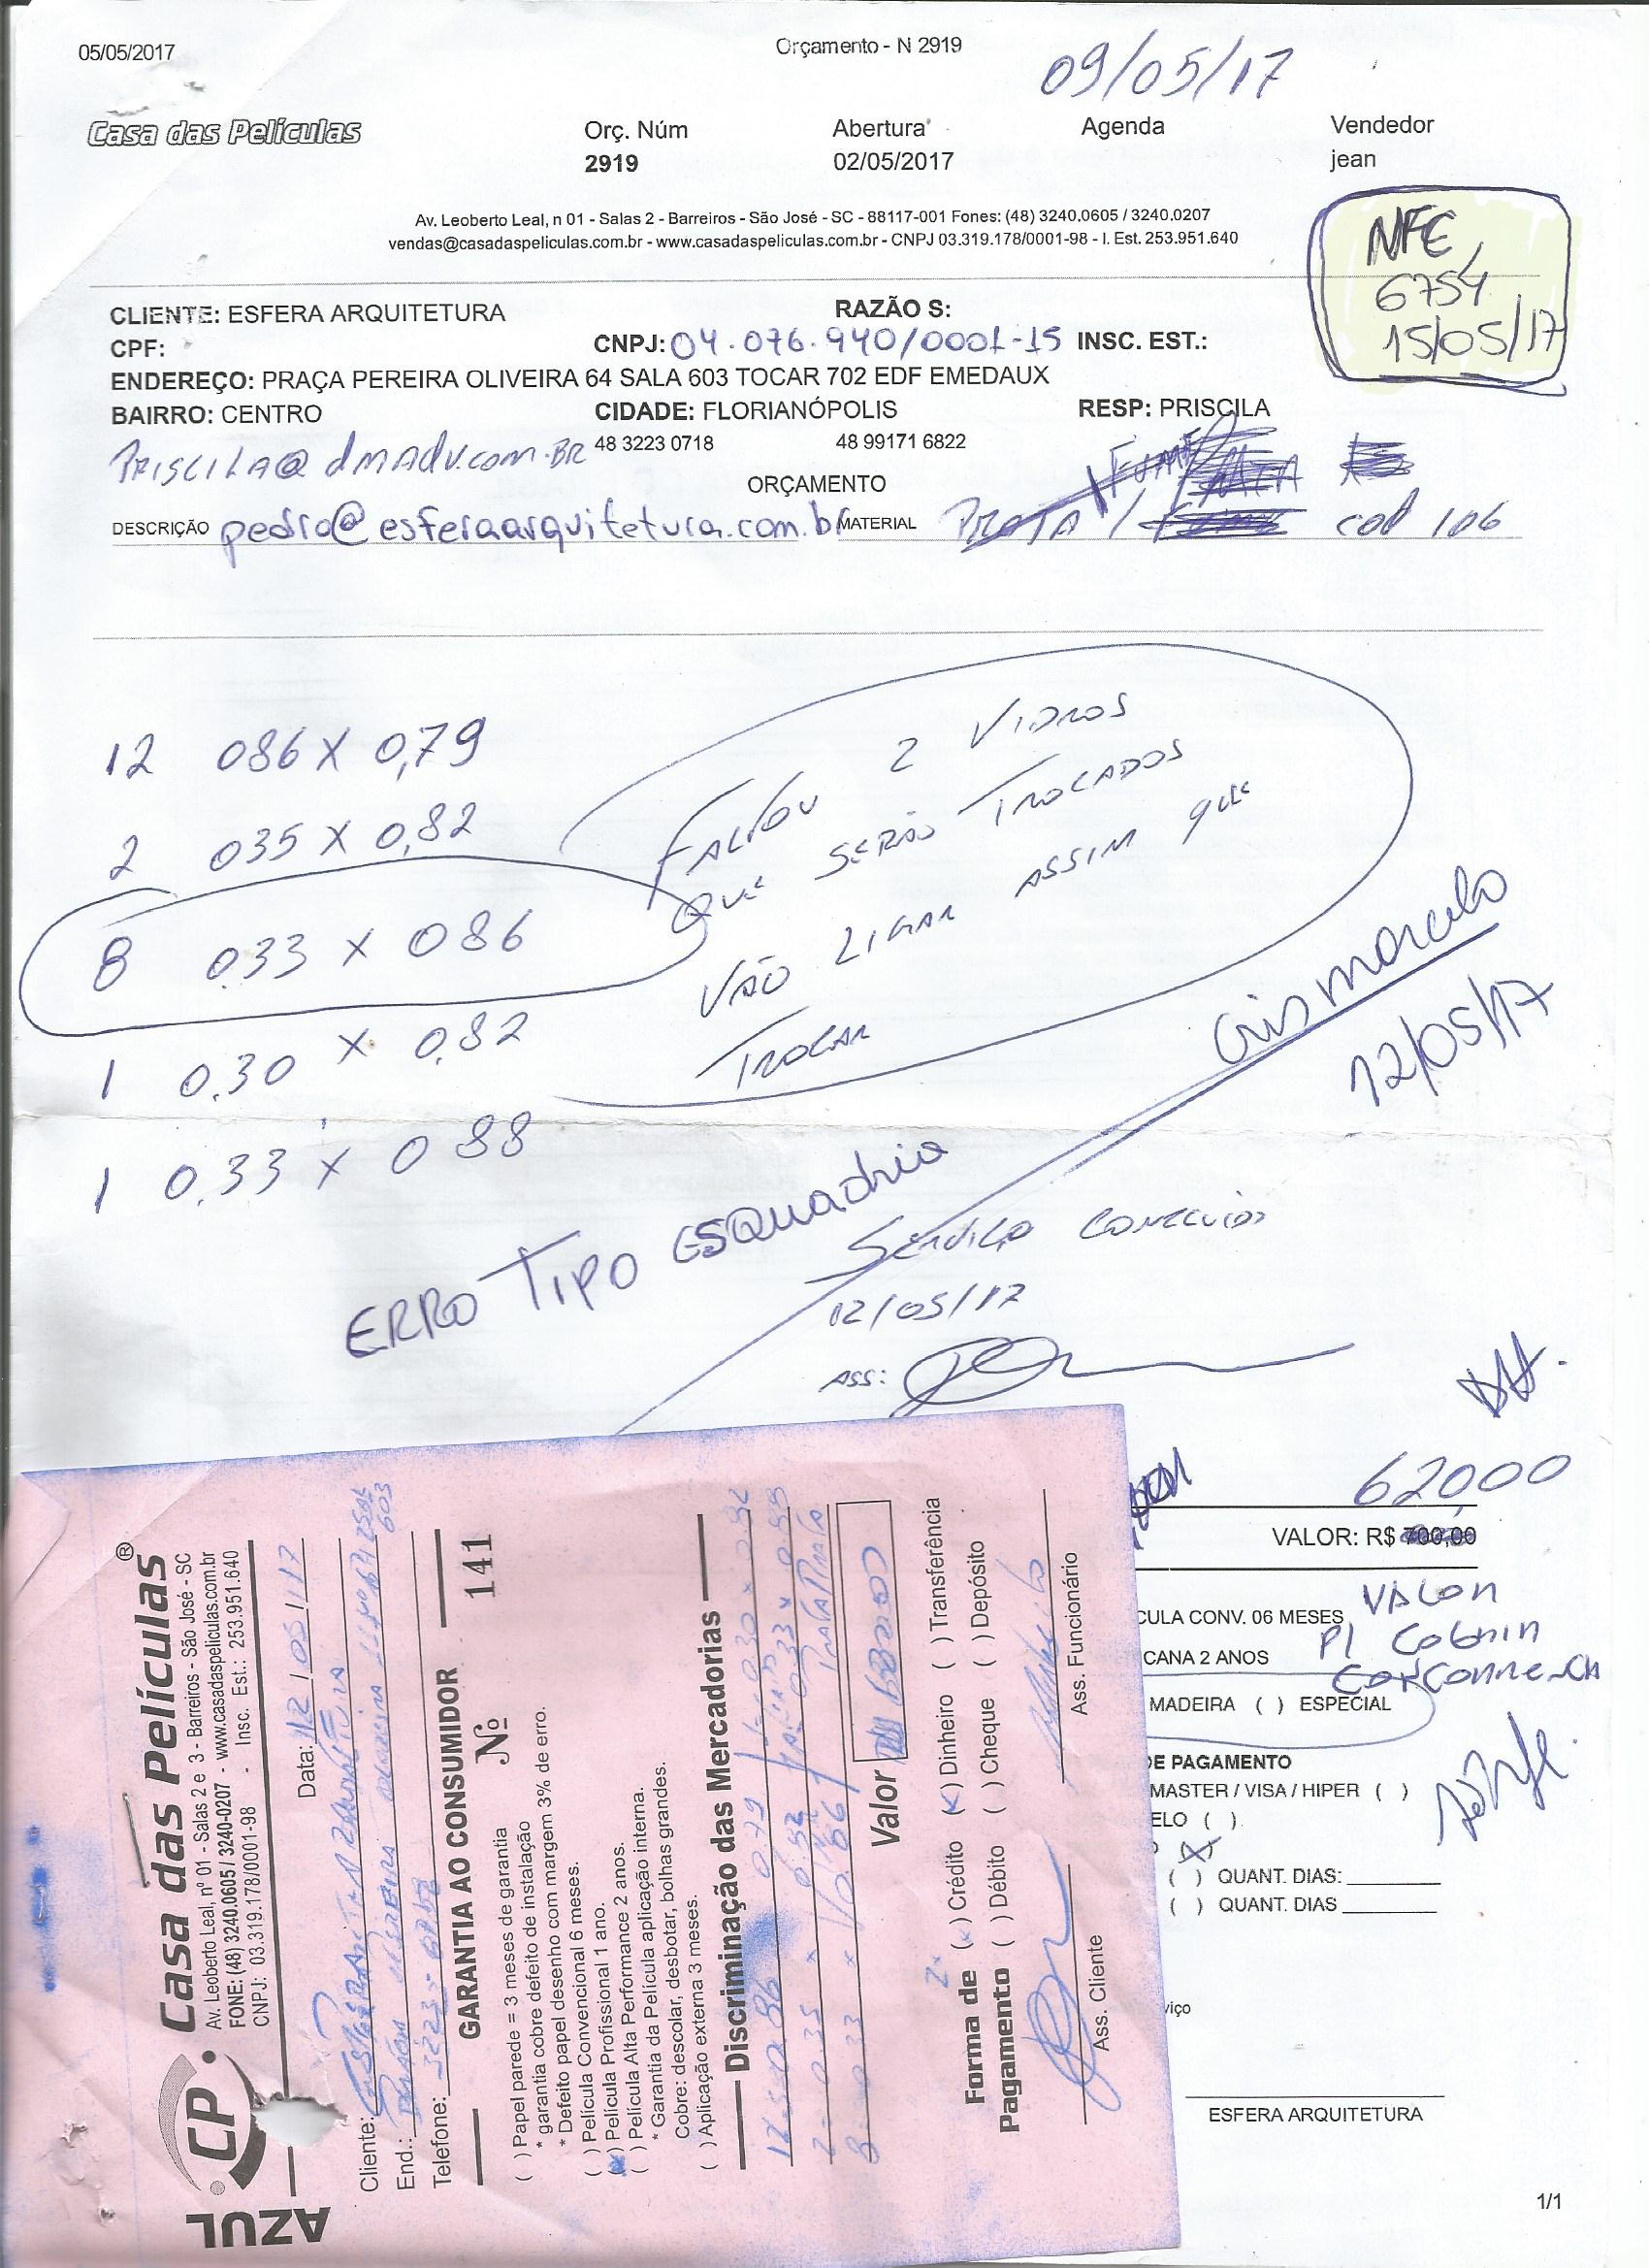 05/05/2017
Orçamento - N 2919
09/05/17
Casa das Películas
Orç. Núm
Abertura
Agenda
Vendedor
2919
02/05/2017
jean
Av. Leoberto Leal, n 01 - Salas 2 - Barreiros - São José - SC - 88117-001 Fones: (48) 3240.0605 / 3240.0207
vendas@casadaspeliculas.com.br - www.casadaspeliculas.com.br - CNPJ 03.319.178/0001-98 - I. Est. 253.951.640
NFE
6754
15/05/17
CLIENTE: ESFERA ARQUITETURA
RAZÃO S:
CPF:
CNPJ: 04.076.940/0001-15
INSC. EST.:
ENDEREÇO: PRAÇA PEREIRA OLIVEIRA 64 SALA 603 TOCAR 702 EDF EMEDAUX
BAIRRO: CENTRO
CIDADE: FLORIANÓPOLIS
RESP: PRISCILA
PRISCILA@dmadv.com.BR
48 3223 0718
48 99171 6822
ORÇAMENTO
DESCRIÇÃO pedro@esferaarquitetura.com.br
MATERIAL PRATA / cod 106
12 086 X 0,79
2 035 X 0,82
8 033 X 086
1 0.30 X 0.82
1 0.33 X 088
FALTOU 2 VIDROS
QUE SERÃO TROCADOS
VÃO LIGAR ASSIM QUE
TROCAR
12/05/17
ERRO TIPO ESQUADRIA
SERVIÇO CONCLUÍDO
12/05/17
ASS:
62000
VALOR: R$ 700,00
VALOR
P/
CULA CONV. 06 MESES
CANA 2 ANOS
MADEIRA ( ) ESPECIAL
DE PAGAMENTO
MASTER / VISA / HIPER ( )
ELO ( )
( ) QUANT. DIAS:
( ) QUANT. DIAS
viço
ESFERA ARQUITETURA
1/1
AZUL
CP
Casa das Películas ®
Av. Leoberto Leal, nº 01 - Salas 2 e 3 - Barreiros - São José - SC
FONE: (48) 3240.0605 / 3240-0207 - www.casadaspeliculas.com.br
CNPJ: 03.319.178/0001-98 - Insc. Est.: 253.951.640
Data: 12/05/17
Cliente:
End.:
603
Telefone:
GARANTIA AO CONSUMIDOR
Nº 141
( ) Papel parede = 3 meses de garantia
* garantia cobre defeito de instalação
* Defeito papel desenho com margem 3% de erro.
( ) Película Convencional 6 meses.
(x) Película Profissional 1 ano.
( ) Película Alta Performance 2 anos.
* Garantia da Película aplicação interna.
Cobre: descolar, desbotar, bolhas grandes.
( ) Aplicação externa 3 meses.
Discriminação das Mercadorias
Valor
Forma de Pagamento
2x
(x) Crédito (x) Dinheiro ( ) Transferência
( ) Débito ( ) Cheque ( ) Depósito
Ass. Cliente
Ass. Funcionário